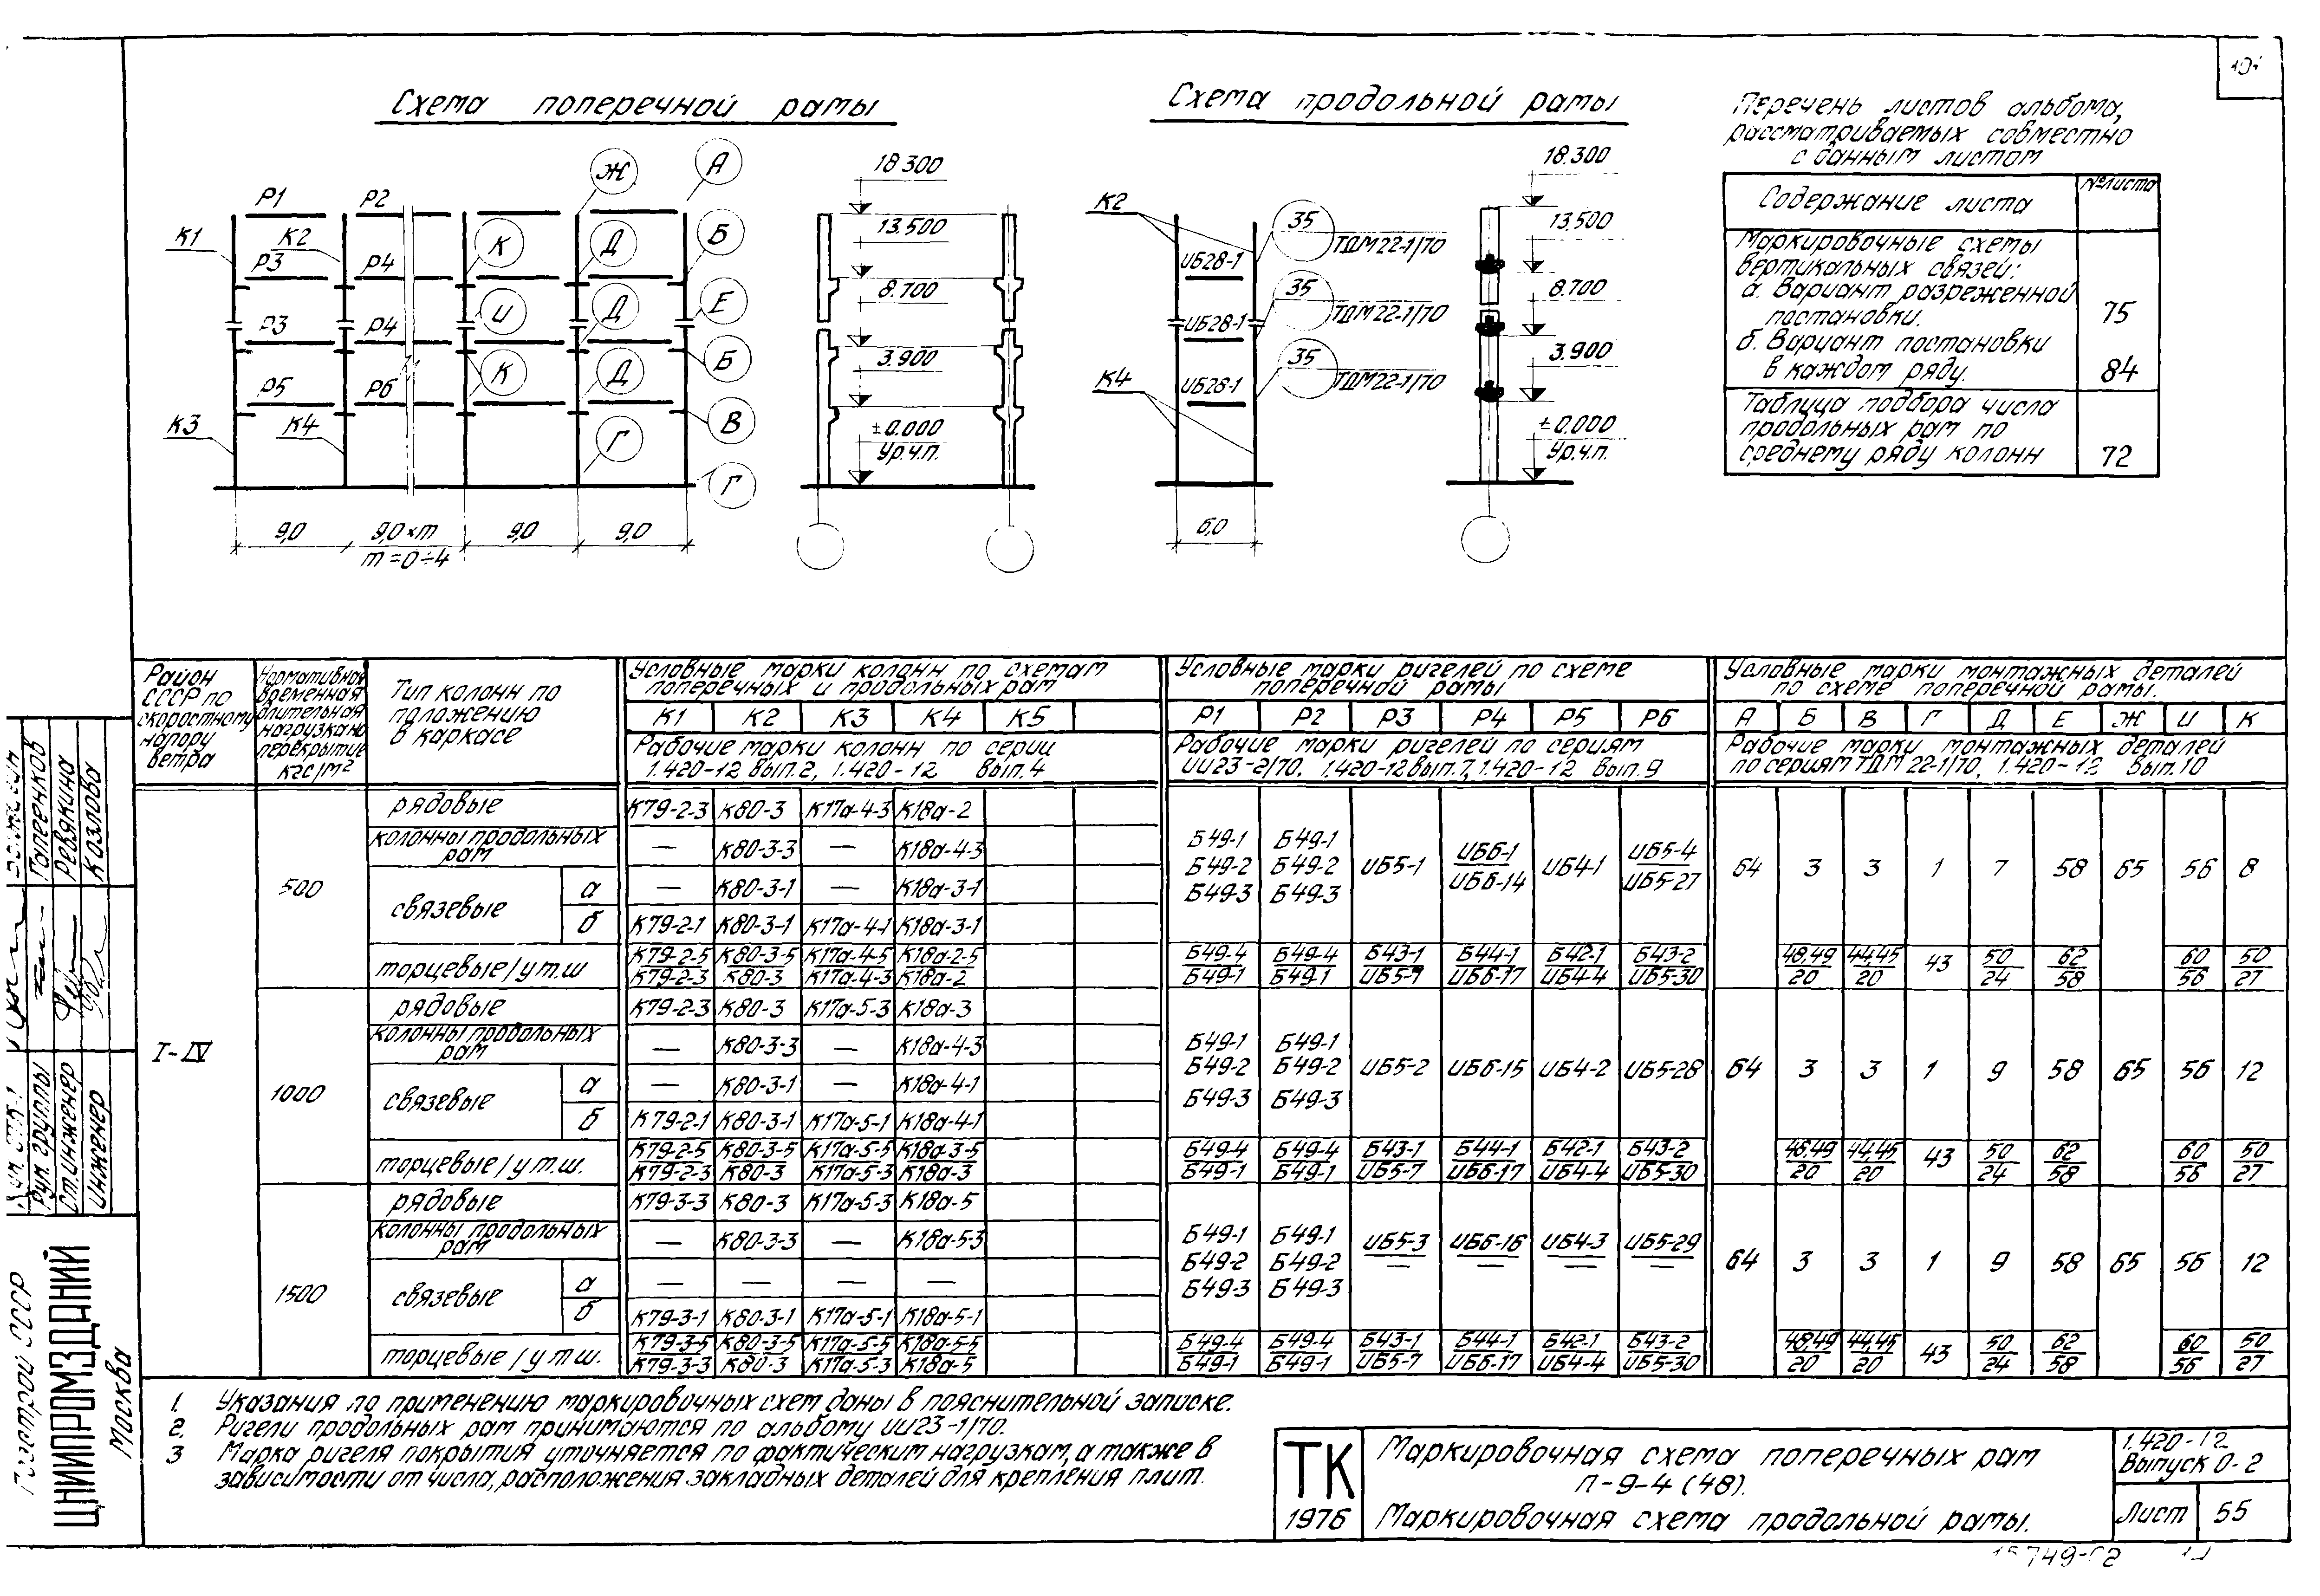 101
Схема поперечной рамы
Схема продольной рамы
Перечень листов альбома,
рассматриваемых совместно
с данным листом
Содержание листа №листа
Маркировочные схемы
вертикальных связей:
а. Вариант разреженной
постановки. 75
б. Вариант постановки
в каждом ряду. 84
Таблица подбора числа
продольных рам по
среднему ряду колонн 72
Ж А
Р1 Р2
К1 К2 К Д Б
Р3 Р4
И Д Е
Р3 Р4
К Д Б
Р5 Р6
К3 К4 Г В
Г
9,0 9,0×m 9,0 9,0
m=0÷4
18.300
13.500
8.700
3.900
±0.000
Ур.ч.п.
К2 35 ТДМ22-1/70
ИБ28-1
35 ТДМ22-1/70
ИБ28-1
К4 35 ТДМ22-1/70
ИБ28-1
6,0
18.300
13.500
8.700
3.900
±0.000
Ур.ч.п.
Район
СССР по
скоростному
напору
ветра
Нормативная
временная
длительная
нагрузка на
перекрытие
кгс/м²
Тип колонн по
положению
в каркасе
Условные марки колонн по схемам
поперечных и продольных рам
К1 К2 К3 К4 К5
Рабочие марки колонн по серии
1.420-12 вып.2, 1.420-12 вып.4
Условные марки ригелей по схеме
поперечной рамы
Р1 Р2 Р3 Р4 Р5 Р6
Рабочие марки ригелей по сериям
ИИ23-2/70, 1.420-12 вып.7, 1.420-12 вып.9
Условные марки монтажных деталей
по схеме поперечной рамы.
А Б В Г Д Е Ж И К
Рабочие марки монтажных деталей
по сериям ТДМ 22-1/70, 1.420-12 вып.10
I-IV
500
рядовые К79-2-3 К80-3 К17а-4-3 К18а-2
колонны продольных
рам — К80-3-3 — К18а-4-3
связевые
а — К80-3-1 — К18а-3-1
б К79-2-1 К80-3-1 К17а-4-1 К18а-3-1
Б49-1 Б49-1
Б49-2 Б49-2 ИБ5-1 ИБ6-1 ИБ4-1 ИБ5-4
Б49-3 Б49-3 ИБ6-14 ИБ5-27
64 3 3 1 7 58 65 56 8
торцевые/у т.ш
К79-2-5 К80-3-5 К17а-4-5 К18а-2-5 Б49-4 Б49-4 Б43-1 Б44-1 Б42-1 Б43-2 48,49 44,45 43 50 62 60 50
К79-2-3 К80-3 К17а-4-3 К18а-2 Б49-1 Б49-1 ИБ5-7 ИБ6-17 ИБ4-4 ИБ5-30 20 20 24 58 56 27
1000
рядовые К79-2-3 К80-3 К17а-5-3 К18а-3
колонны продольных
рам — К80-3-3 — К18а-4-3
связевые
а — К80-3-1 — К18а-4-1
б К79-2-1 К80-3-1 К17а-5-1 К18а-4-1
Б49-1 Б49-1
Б49-2 Б49-2 ИБ5-2 ИБ6-15 ИБ4-2 ИБ5-28
Б49-3 Б49-3
64 3 3 1 9 58 65 56 12
торцевые/у т.ш.
К79-2-5 К80-3-5 К17а-5-5 К18а-3-5 Б49-4 Б49-4 Б43-1 Б44-1 Б42-1 Б43-2 48,49 44,45 43 50 62 60 50
К79-2-3 К80-3 К17а-5-3 К18а-3 Б49-1 Б49-1 ИБ5-7 ИБ6-17 ИБ4-4 ИБ5-30 20 20 24 58 56 27
1500
рядовые К79-3-3 К80-3 К17а-5-3 К18а-5
колонны продольных
рам — К80-3-3 — К18а-5-3
связевые
а — — — —
б К79-3-1 К80-3-1 К17а-5-1 К18а-5-1
Б49-1 Б49-1 ИБ5-3 ИБ6-16 ИБ4-3 ИБ5-29
Б49-2 Б49-2 — — — —
Б49-3 Б49-3
64 3 3 1 9 58 65 56 12
торцевые/у т.ш.
К79-3-5 К80-3-5 К17а-5-5 К18а-5-5 Б49-4 Б49-4 Б43-1 Б44-1 Б42-1 Б43-2 48,49 44,45 43 50 62 60 50
К79-3-3 К80-3 К17а-5-3 К18а-5 Б49-1 Б49-1 ИБ5-7 ИБ6-17 ИБ4-4 ИБ5-30 20 20 24 58 56 27
1. Указания по применению маркировочных схем даны в пояснительной записке.
2. Ригели продольных рам принимаются по альбому ИИ23-1/70.
3 Марка ригеля покрытия уточняется по фактическим нагрузкам, а также в
зависимости от числа, расположения закладных деталей для крепления плит.
ТК
1976
Маркировочная схема поперечных рам
П-9-4 (48).
Маркировочная схема продольной рамы.
1.420-12
Выпуск 0-2
Лист 55
15749-02
Госстрой СССР
ЦНИИПРОМЗДАНИЙ
Москва
Рук. группы
Ст.инженер Ревякина
Инженер Козлова